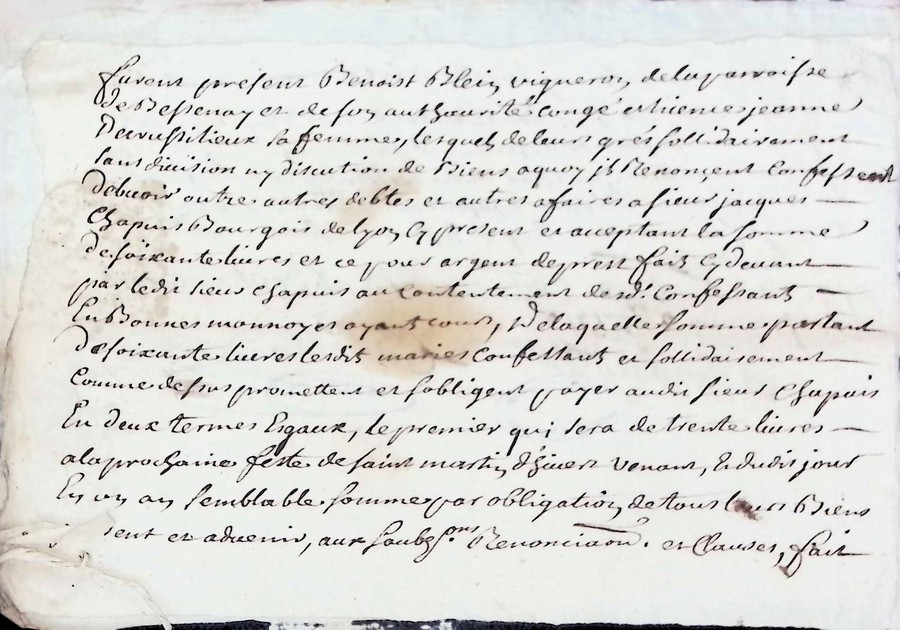 furent present Benoist Blein vigneron, de la parroisse
de Bessenay et de son authourité congé et licence jeanne
Dervussilieux sa femme, lesquels de leurs grés sollidairement
sans division ny discution de Biens a quoy ils Renonçent Confessent
debuoir outre autres debtes et autres afaires a sieur jacques
Chapuis Bourgois de lyon Cy present et acceptant la somme
de soixante liures et ce pour argent de prest fait Cy deuant
par ledit sieur Chapuis au Contentement desdts Confessants
En Bonnes monnoyes ayant cours, de laquelle somme partant
De soixante liures lesdits mariés Confessants et sollidairement
Comme dessus promettent et sobligent payer audit sieur Chapuis
En deux termes Esgaux, le premier qui sera de trente liures
a la prochaine feste de saint martin d'hiuert venant, Et dudit jour
En un an semblable somme par obligation de tous leurs Biens
sent et aduenir, aux soubzons Renonciaon. et Clauses, fait